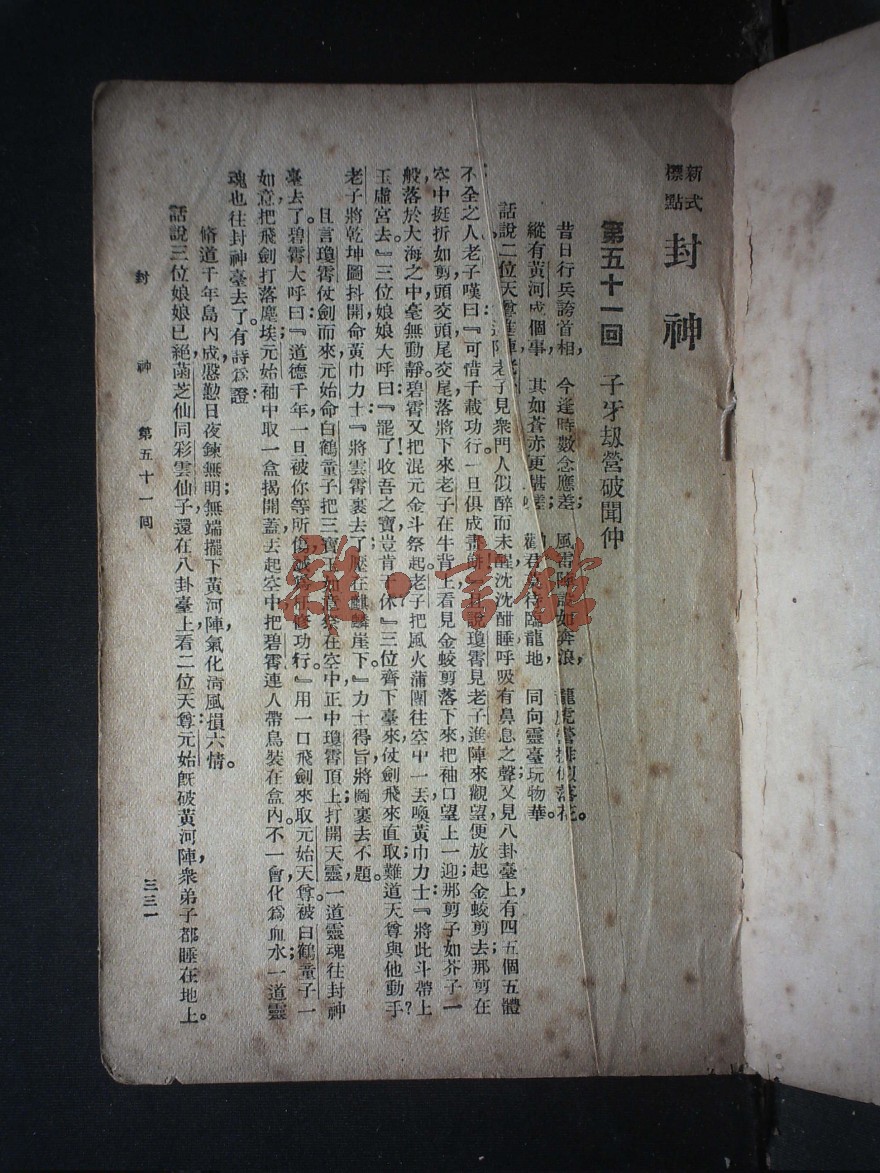 新式
標點
封神
第五十一回 子牙刼營破聞仲
昔日行兵誇首相, 今逢時數念應差; 風雷陣設如奔浪, 龍虎營排似落花。
縱有黃河成個事, 其如蒼赤更堪嗟; 勸君莫待臨龍地, 同向靈臺玩物華。
話說二位天尊進陣老子見衆門人似醉而未醒沈沈酣睡呼吸有鼻息之聲又見八卦臺上有四五個五體
不全之人老子嘆曰:『可惜千載功行,一旦俱成畫餅』且說瓊霄見老子進陣來觀望便放起金蛟剪去那剪在
空中挺折如剪,頭交頭尾交尾落將下來老子在牛背上看見金蛟剪落下來把袖口望上一迎那剪子如芥子一
般落於大海之中毫無動靜碧霄又把混元金斗祭起;老子把風火蒲團往空中一丟喚黃巾力士:『將此斗帶上
玉虛宮去。』三位娘娘大呼曰:『罷了!收吾之寶豈肯干休?』三位齊下臺來仗劍飛來直取難道天尊與他動手?
老子將乾坤圖抖開命黃巾力士:『將雲霄裹去了壓在麒麟崖下。』力士得旨將圖裹去不題。
且言瓊霄仗劍而來元始命白鶴童子把三寶玉如意祭在空中正中瓊霄頂上;打開天靈,一道靈魂往封神
臺去了。碧霄大呼曰:『道德千年,一旦被你等所傷誠爲枉修功行。』用一口飛劍來取元始天尊。被白鶴童子一
如意把飛劍打落塵埃元始袖中取一盒揭開蓋丟起空中把碧霄連人帶鳥裝在盒內。不一會,化爲血水;一道靈
魂也往封神臺去了。有詩爲證:
脩道千年島內成慇懃日夜鍊無明;無端擺下黃河陣,氣化淸風損六情。
話說三位娘娘已絕,菡芝仙同彩雲仙子,還在八卦臺上看二位天尊;元始旣破黃河陣,衆弟子都睡在地上。
封神 第五十一回 三三一
雜·書館